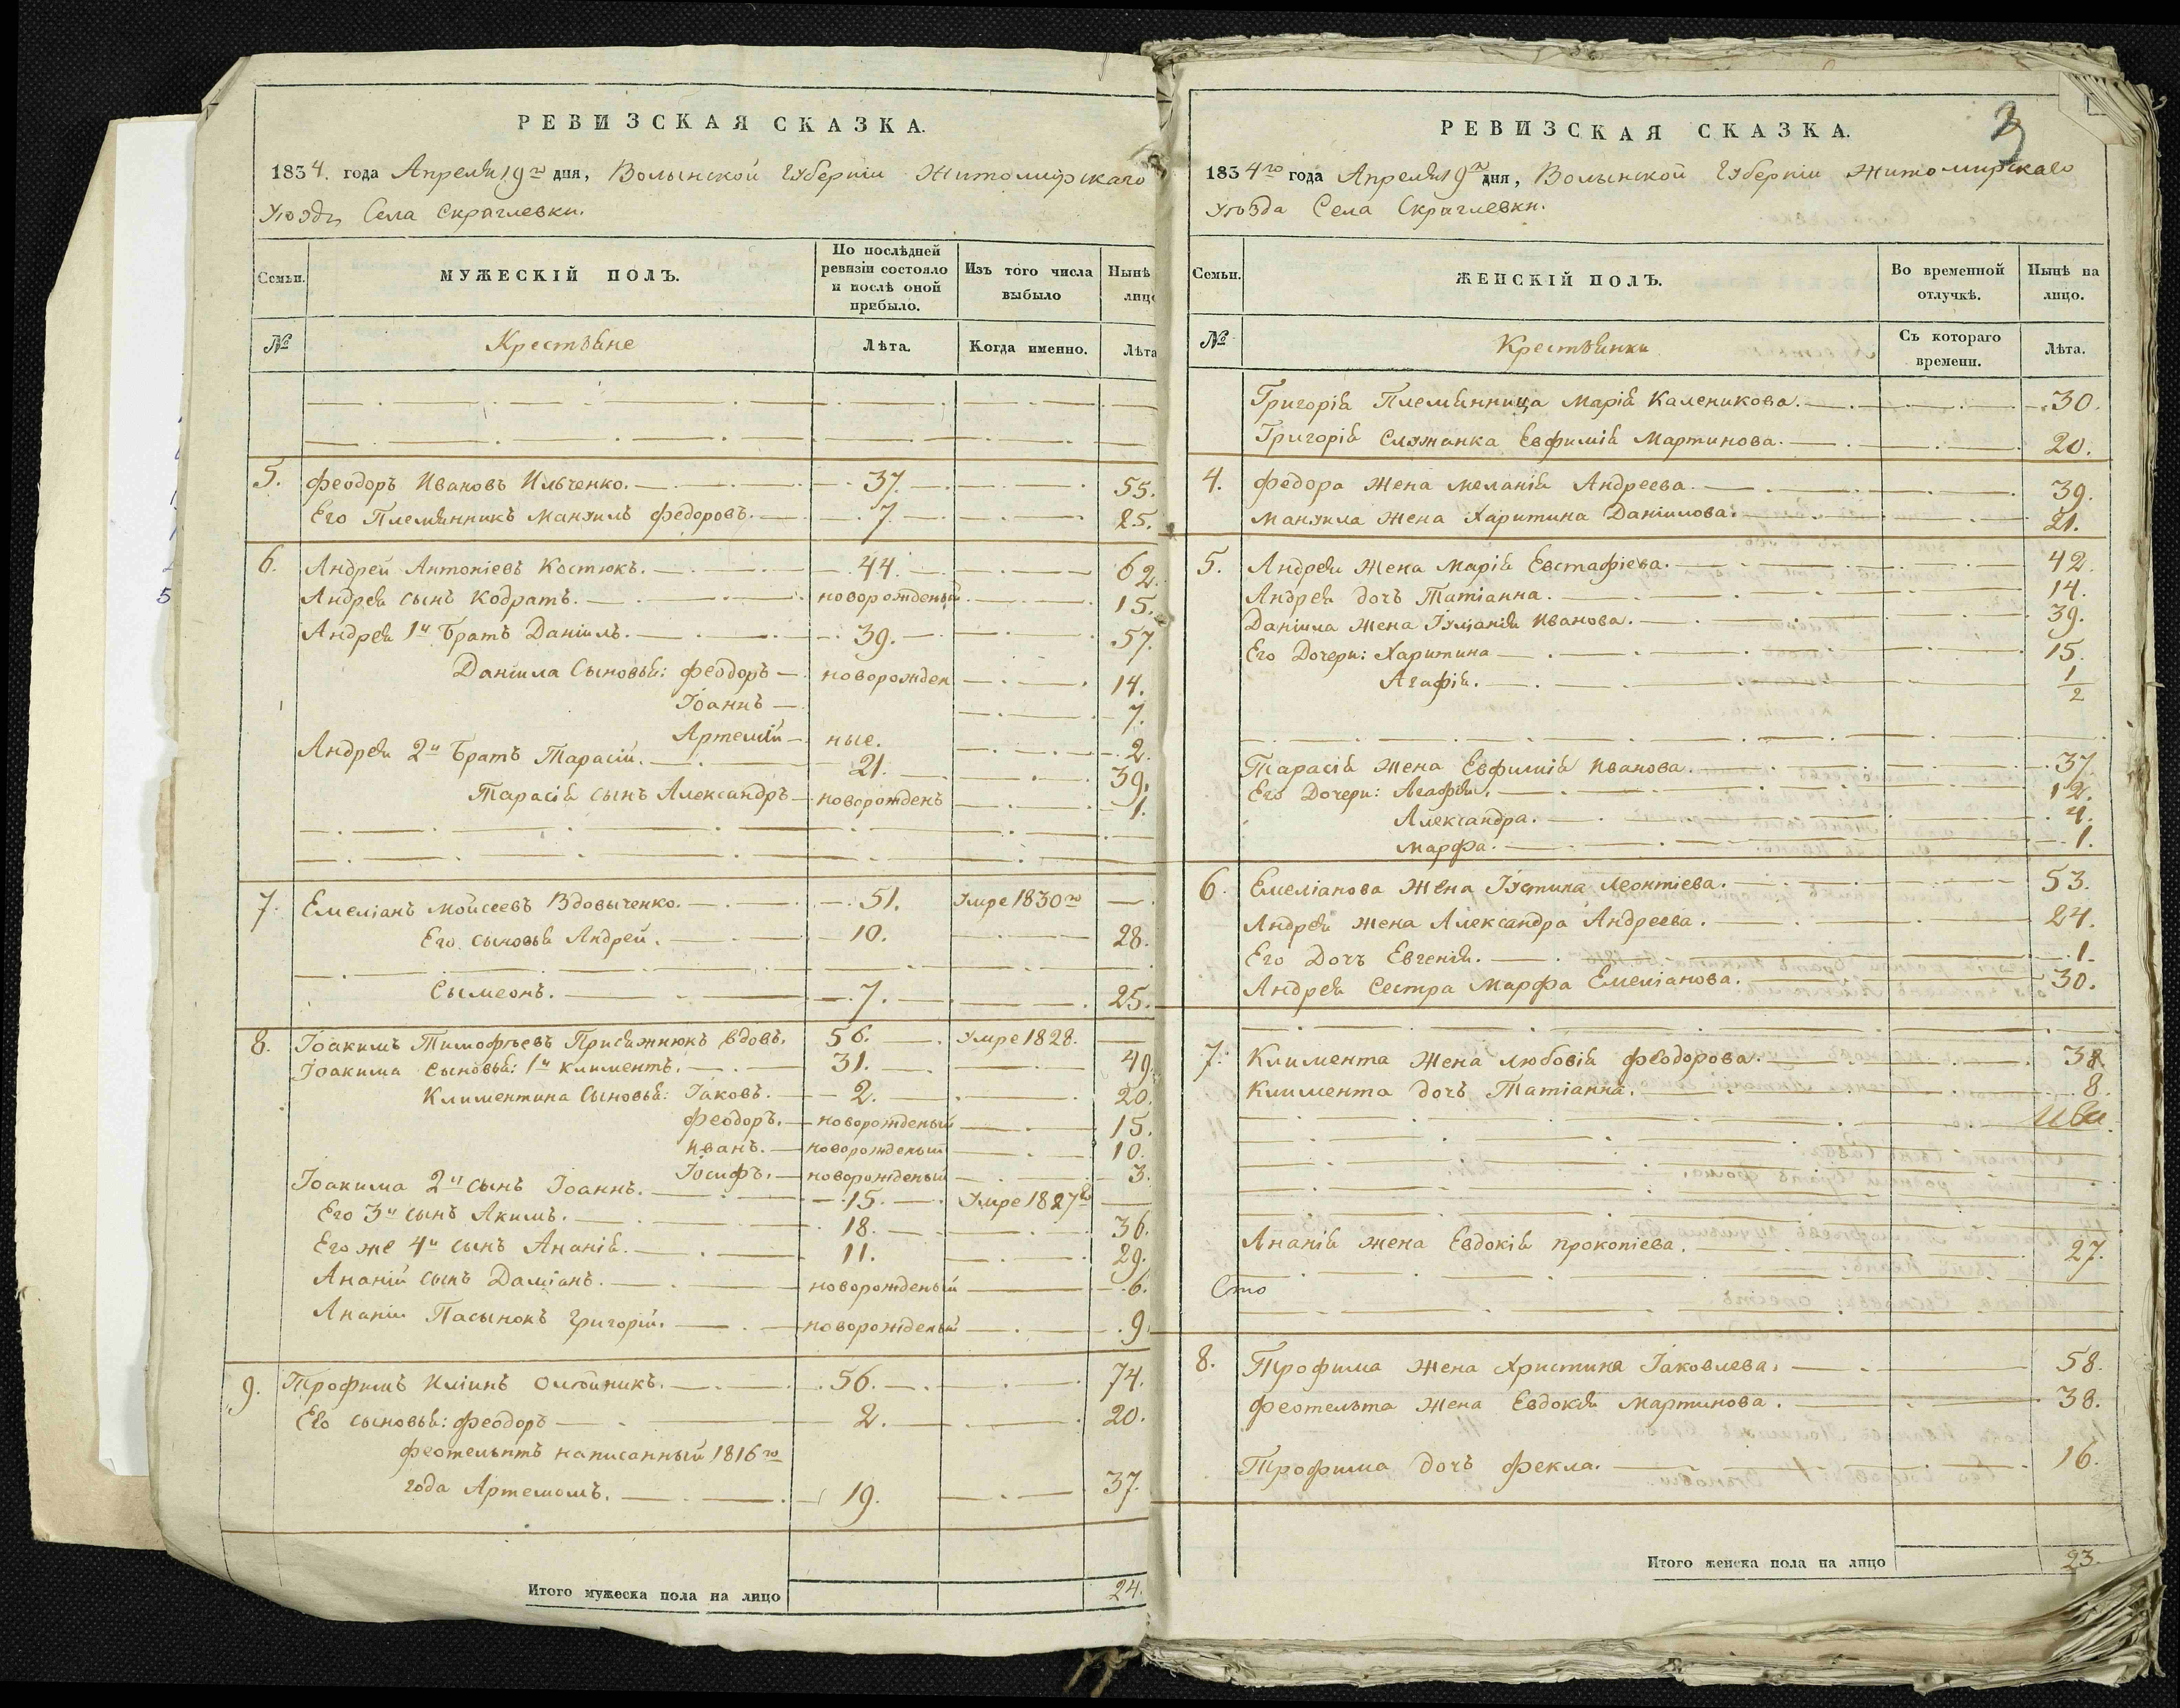 РЕВИЗСКАЯ СКАЗКА.
1834. года Апреля 19го дня, Волынской Губерніи Житомирскаго
Уезда Села Скраглевки.
Семьи.
МУЖЕСКІЙ ПОЛЪ.
По послѣдней ревизіи состояло и послѣ оной прибыло.
Изъ того числа выбыло
Нынѣ лицо
№
Крестьяне
Лѣта.
Когда именно.
Лѣта
5. Феодоръ Ивановъ Ильченко. 37. 55.
Его Племянникъ Мануилъ Федоровъ. 7. 25.
6. Андрей Антоніевъ Костюкъ. 44. 62.
Андрея сынъ Кодратъ. новорожденый 15.
Андрея 1й Братъ Даніилъ. 39. 57.
Даніила Сыновья: Феодоръ новорожден 14.
Іоаннъ 7.
Артемій ные. 2.
Андрея 2й Братъ Тарасій. 21. 39.
Тарасія сынъ Александръ новорожденъ 1.
7. Емеліанъ Моисеевъ Вдовыченко. 51. Умре 1830го
Его сыновья Андрей. 10. 28.
Сымеонъ. 7. 25.
8. Іоакимъ Тимофѣевъ Присяжнюкъ вдовъ. 56. Умре 1828.
Іоакима сыновья: 1й Климентъ. 31. 49.
Климентина Сыновья: Іаковъ. 2. 20.
Феодоръ. новорожденый 15.
Иванъ. новорожденый 10.
Іосифъ. новорожденый 3.
Іоакима 2й сынъ Іоаннъ. 15. Умре 1827го
Его 3й сынъ Акимъ. 18. 36.
Его же 4й сынъ Ананія. 11. 29.
Ананіи сынъ Даміанъ. новорожденый 6.
Ананіи Пасынокъ Григорій. новорожденый 9.
9. Трофимъ Иліинъ Олѣйникъ. 56. 74.
Его сыновья: Феодоръ 2. 20.
Феотемптъ написанный 1816го
года Артемомъ. 19. 37.
Итого мужеска пола на лицо 24.
3
РЕВИЗСКАЯ СКАЗКА.
1834го года Апреля 19го дня, Волынской Губерніи Житомирскаго
Уезда Села Скраглевки.
Семьи.
ЖЕНСКІЙ ПОЛЪ.
Во временной отлучкѣ.
Нынѣ на лицо.
№
Крестьянки
Съ котораго времени.
Лѣта.
Григорія Племянница Марія Каленикова. 30.
Григорія Служанка Евфимія Мартинова. 20.
4. Федора Жена Меланія Андреева. 39.
Мануила Жена Харитина Даніилова. 21.
5. Андрея Жена Марія Евстафіева. 42.
Андрея дочь Татіанна. 14.
Даніила Жена Іуліанія Иванова. 39.
Его Дочери: Харитина 15.
Агафія. 1/2
Тарасія Жена Евфимія Иванова. 37.
Его Дочери: Агафія. 12.
Александра. 4.
Марфа. 1.
6. Емеліанова Жена Іустина Леонтіева. 53.
Андрея Жена Александра Андреева. 24.
Его Дочь Евгенія. 1.
Андрея Сестра Марфа Емеліанова. 30.
7. Климента Жена Любовія Феодорова. 38.
Климента дочь Татіанна. 8.
Ананія Жена Евдокія Прокопіева. 27.
Сто
8. Трофима Жена Христина Іаковлева. 58.
Феотемпта Жена Евдокія Мартинова. 38.
Трофима дочь Фекла. 16.
Итого женска пола на лицо 23.